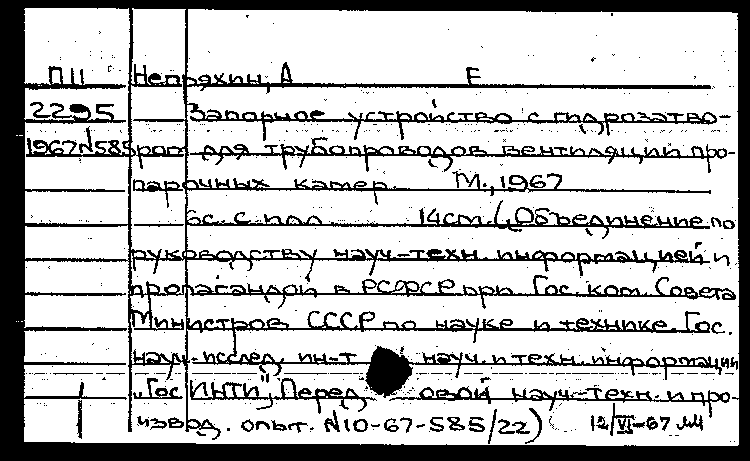 П11 Непряхин, А Е
2295 Запорное устройство с гидрозатво-
1967 N585 ром для трубопроводов вентиляции про-
парочных камер. М., 1967
6с. с илл. 14см. (Объединение по
руководству науч.-техн. информацией и
пропагандой в РСФСР при Гос. ком. Совета
Министров СССР по науке и технике. Гос.
науч.-исслед. ин-т науч. и техн. информации
„ГосИНТИ". Перед овой науч.-техн. и про-
извод. опыт. N10-67-585/22) 12/VI-67